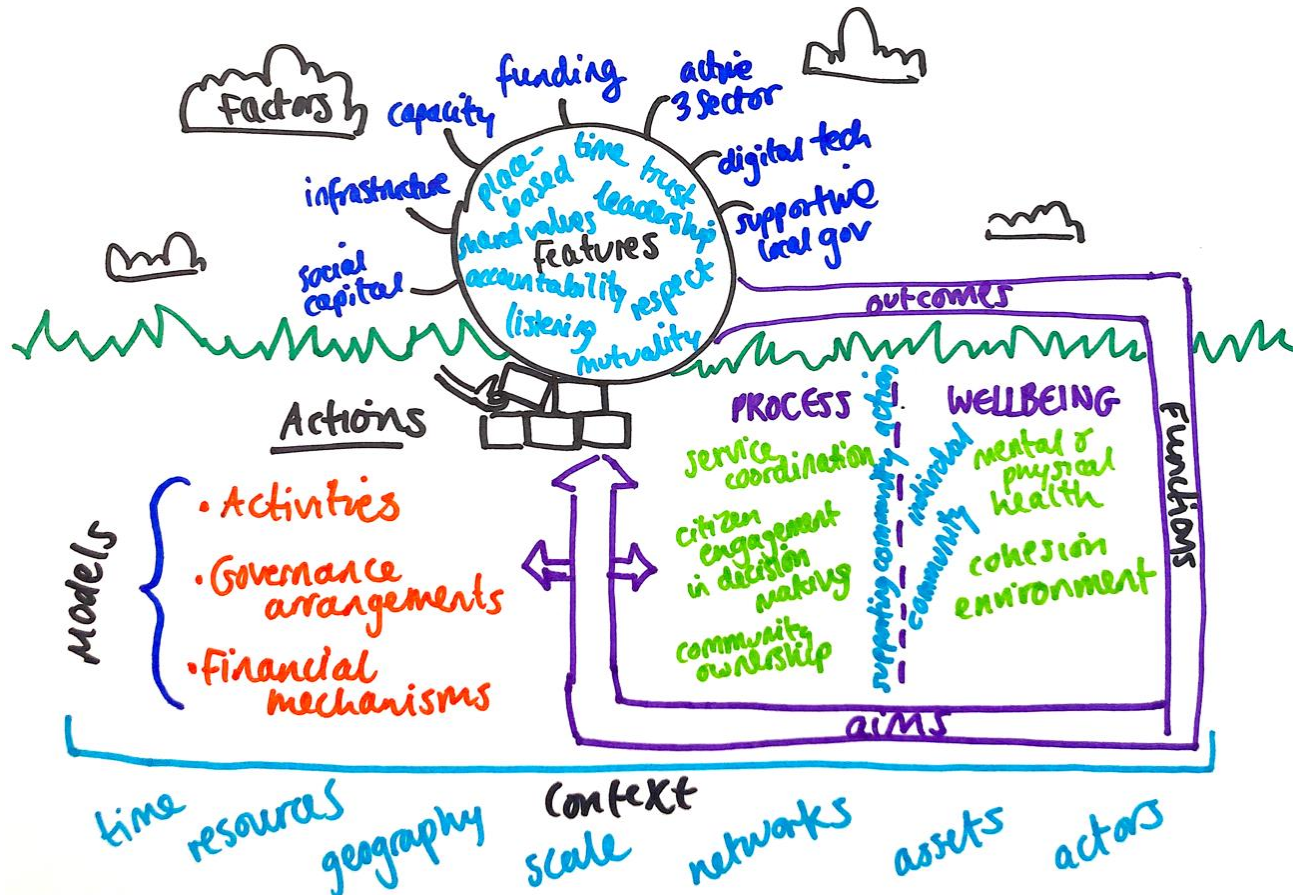 Factors
funding
active
3 sector
capacity
digital tech
infrastructure
supportive
local gov
social
capital
place-
based
time
trust
leadership
shared values
Features
accountability
respect
listening
mutuality
outcomes
Functions
Actions
Models
• Activities
• Governance
arrangements
• Financial
mechanisms
PROCESS
service
coordination
citizen
engagement
in decision
making
community
ownership
supporting community action
WELLBEING
individual
community
mental &
physical
health
cohesion
environment
aims
Context
time
resources
geography
scale
networks
assets
actors